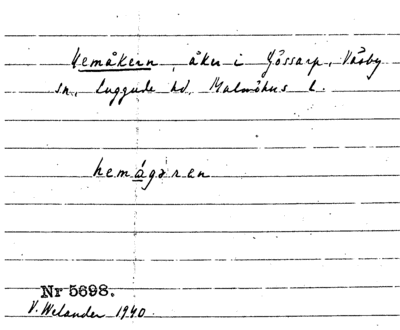 Hemåkern, åker i Gössarp, Väsby
sn, Luggude hd, Malmöhus l.
hemágəren
Nr 5698.
V. Welander 1940.